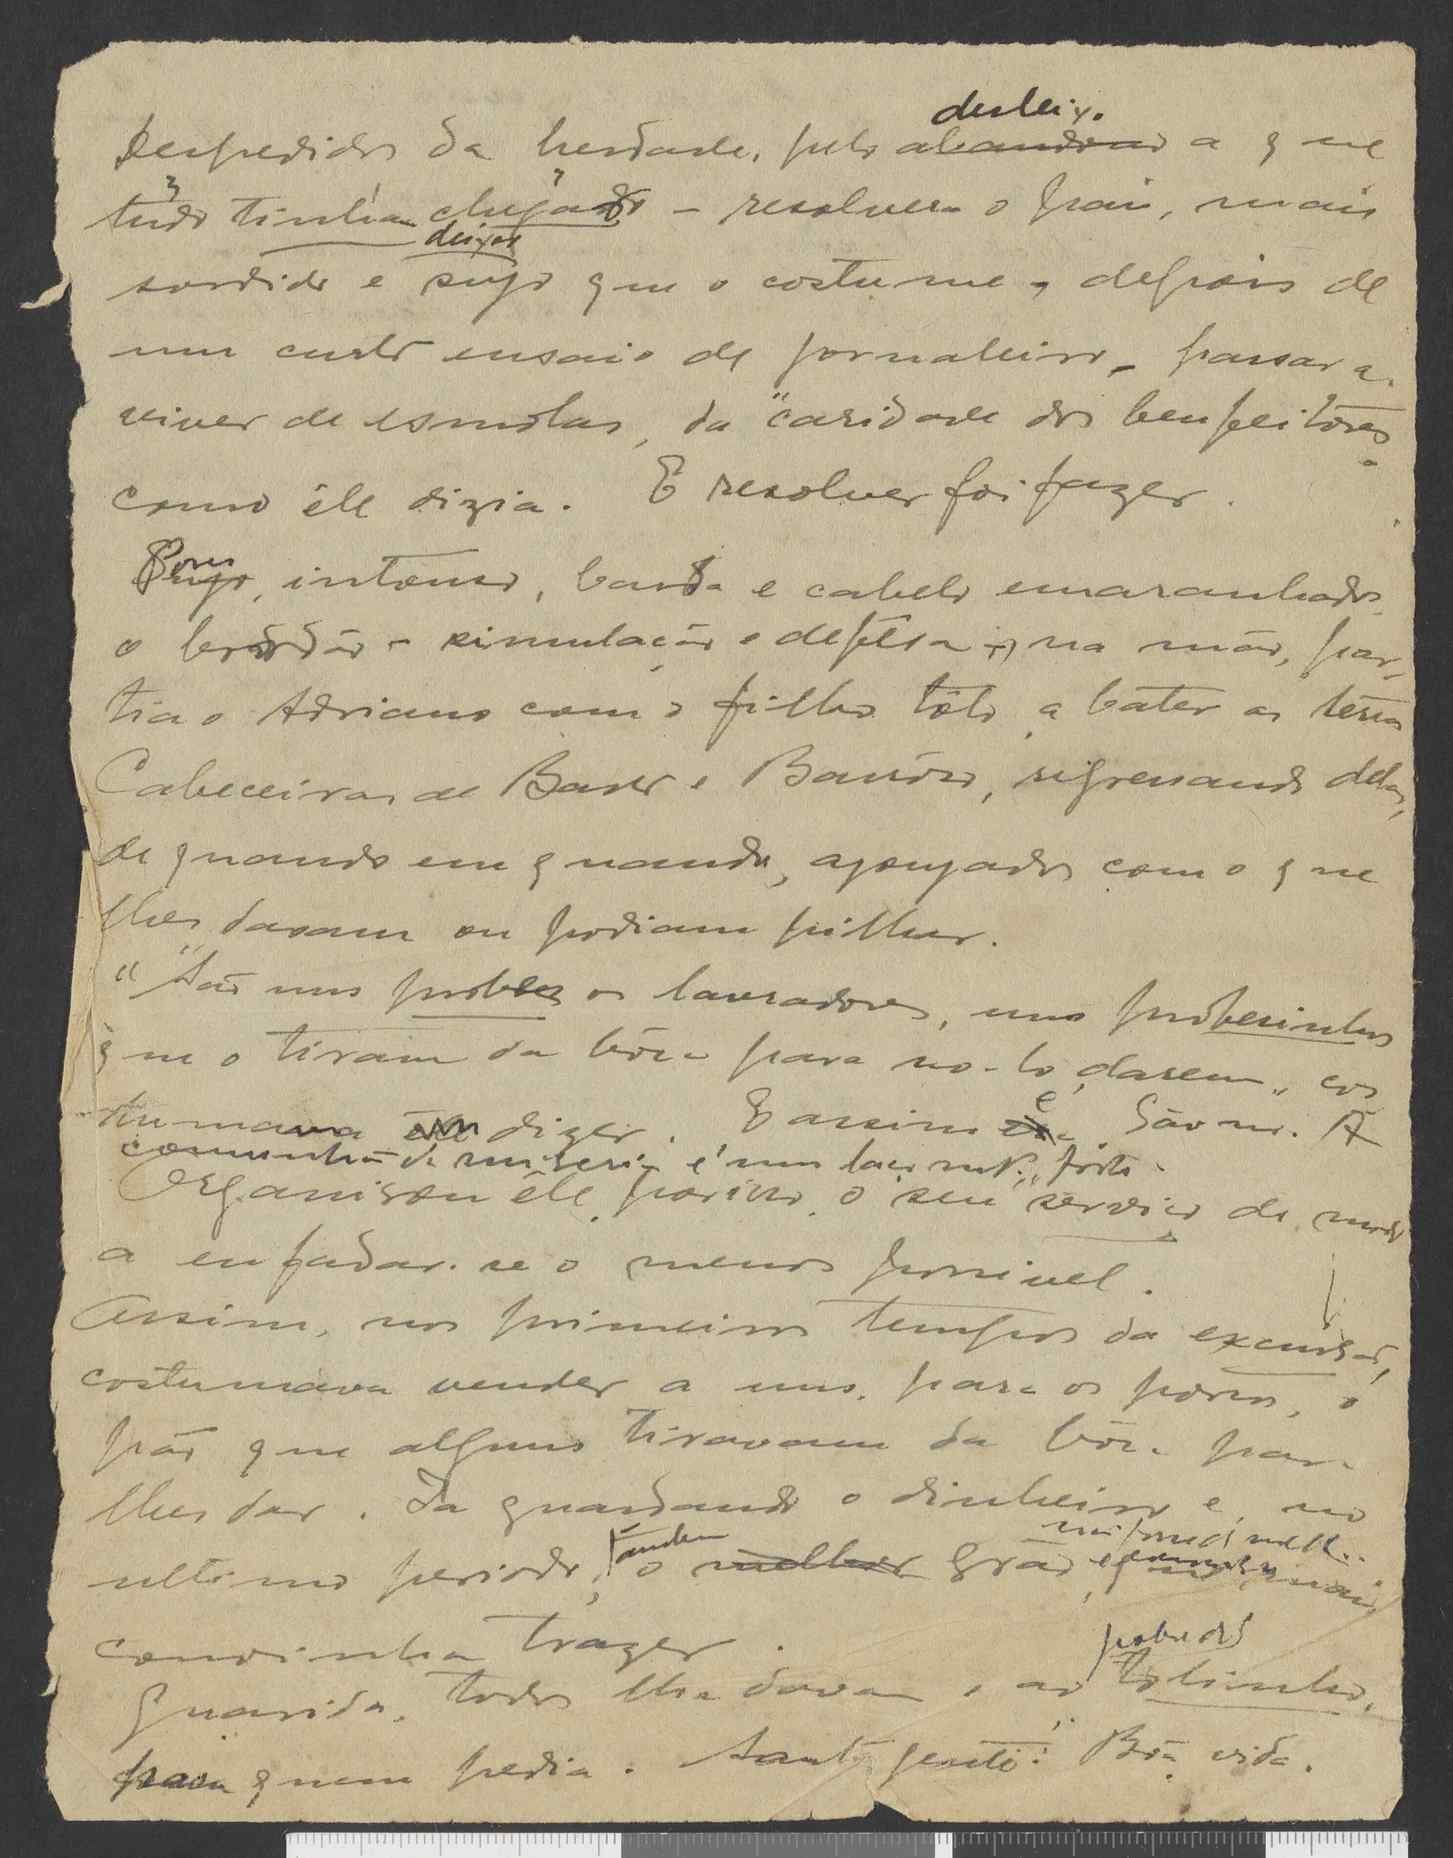 desleixo
Despedidos da herdade, pelo abandono a que
tudo tinha chegado – resolvera o pai, mais
deixar
sordido e sujo que o costume, depois de
um curto ensaio de jornaleiro, passar a
viver de esmolas, da "caridade dos benfeitores"
como êle dizia. E resolver foi fazer.
Sujo, intonso, barba e cabelo emaranhados,
o bordão – simulação e defêsa – na mão, par-
tia o Adriano com o filho tôlo, a bater as terras
Cabeceiras de Basto e Barroso, regressando delas,
de quando em quando, ajoujados com o que
lhes davam ou podiam pilhar.
"São uns probes os lavradores, uns probesinhos
que o tiram da bôca para no-lo darem", cos
tumava êle dizer. E assim é. São-no. A
comunhão da miseria é um laço mt.º forte.
Organisou êle, por isso, o seu serviço de modo
a enfadar-se o menos possivel.
Assim, nos primeiros tempos da excursão,
costumava vender a uns, para os porcos, o
pão que alguns tiravam da bôca para
lhes dar. Ia guardando o dinheiro e, no
ultimo periodo, o melhor grão, mais
convinha trazer.
pobre do
Guarida, todos lha davam e ao tolinho,
para quem pedia. Santa gente! Bôa vida.